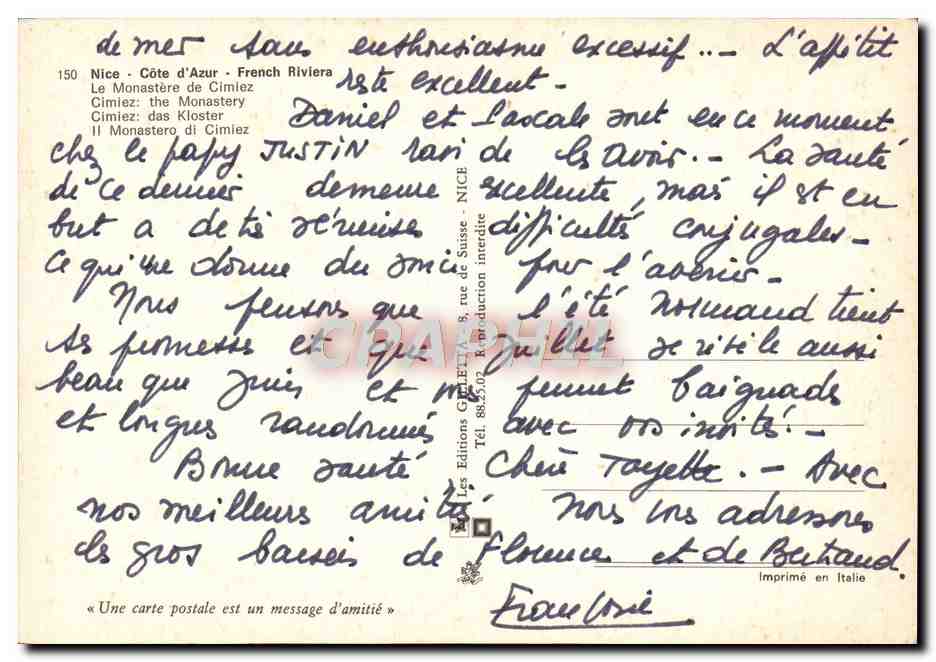 de mer sans enthousiasme excessif.. - L'appétit
150 Nice - Côte d'Azur - French Riviera
reste excellent -
Le Monastère de Cimiez
Cimiez: the Monastery
Cimiez: das Kloster
Il Monastero di Cimiez
Daniel et Pascale sont en ce moment
chez le papy JUSTIN ravi de les avoir. - La santé
de ce dernier demeure excellente, mais il est en
but a de très sérieuses difficultés conjugales -
Ce qui me donne du souci pour l'avenir -
Nous pensons que l'été Normand tient
ses promesses et que Juillet se révèle aussi
beau que Juin et permet baignades
et longues randonnées avec vos invités. -
Bonne santé Chère Tayette. - Avec
nos meilleurs amitiés Nous vous adressons
les gros baisers de Florence et de Bertrand.
Les Editions GILLETTA 8, rue de Suisse - NICE
Tél. 88.25.02 Reproduction interdite
CRAPHIL
Imprimé en Italie
« Une carte postale est un message d'amitié »